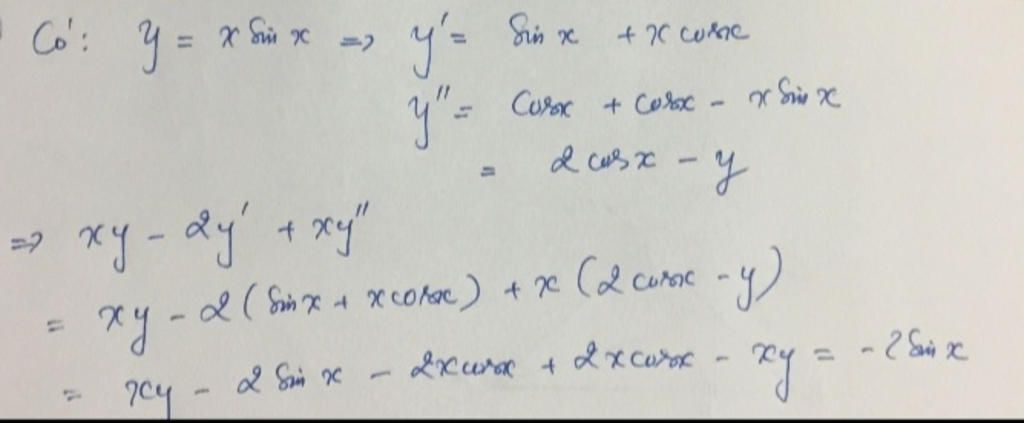 Có: y = x sin x => y' = sin x + x cosx
y'' = cosx + cosx - x sin x
= 2 cosx - y
=> xy - 2y' + xy''
= xy - 2(sin x + x cosx) + x(2 cosx - y)
= xy - 2 sin x - 2x cosx + 2x cosx - xy = -2 sin x